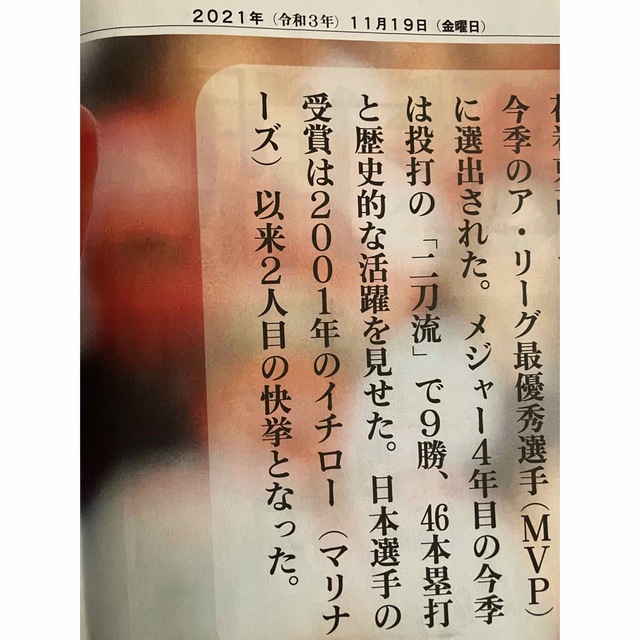 2021年（令和3年）11月19日（金曜日）
今季のア・リーグ最優秀選手（MVP）
に選出された。メジャー4年目の今季
は投打の「二刀流」で9勝、46本塁打
と歴史的な活躍を見せた。日本選手の
受賞は2001年のイチロー（マリナ
ーズ）以来2人目の快挙となった。